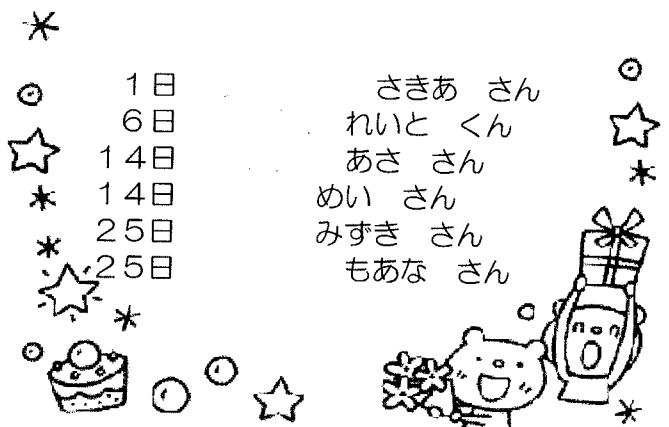 1日 さきあ さん
6日 れいと くん
14日 あさ さん
14日 めい さん
25日 みずき さん
25日 もあな さん